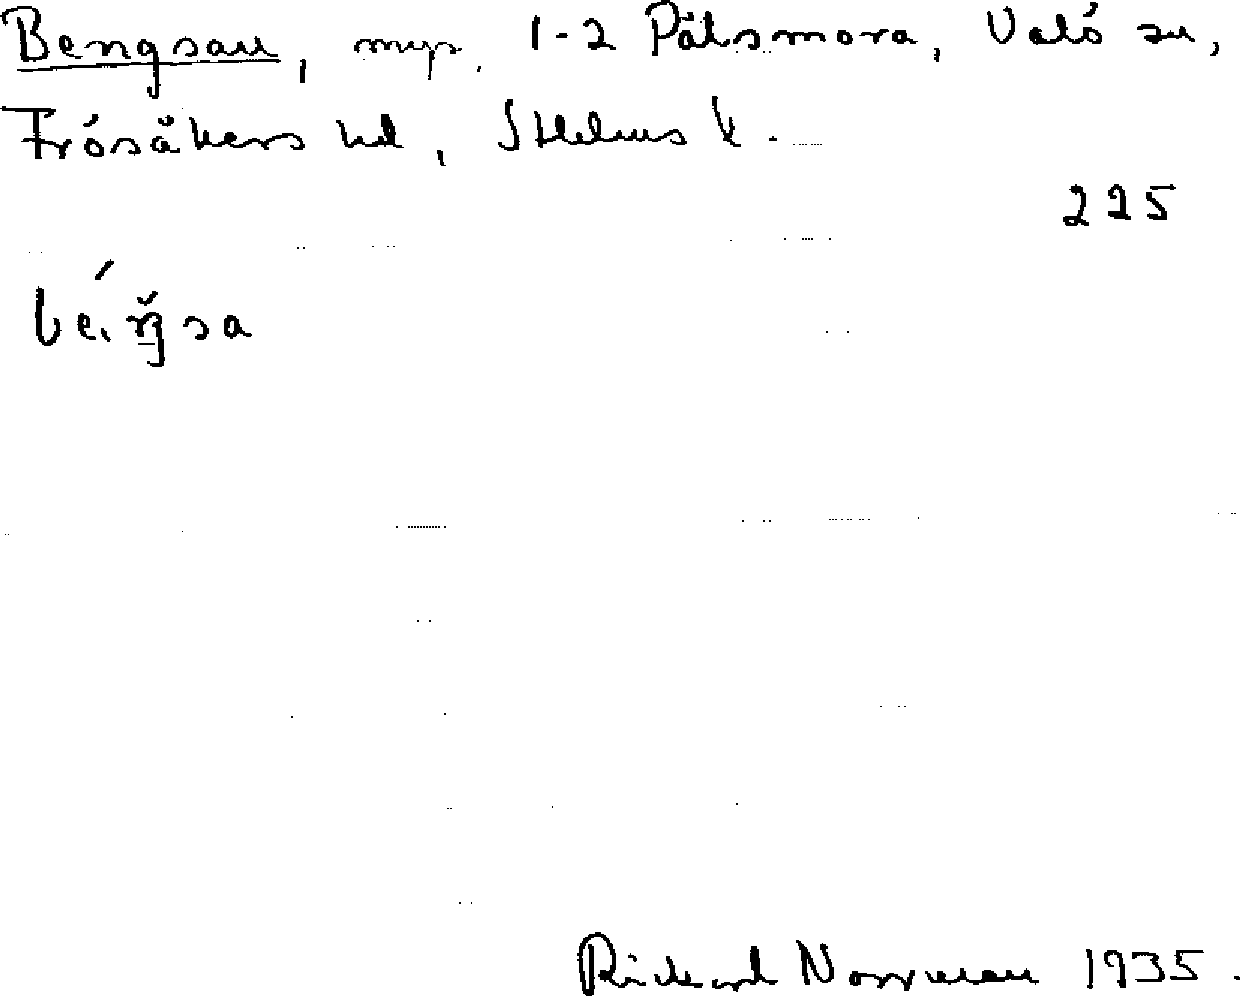 Bengsau, myr. 1-2 Pålsmora, Valö sn,
Frösåkers hd, Sthlms l.
225
Rickard Norrman 1935.